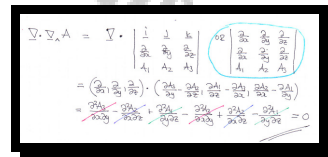 ∇·∇∧A = ∇· | i j k ; ∂/∂x ∂/∂y ∂/∂z ; A₁ A₂ A₃ | OR | ∂/∂x ∂/∂y ∂/∂z ; ∂/∂x ∂/∂y ∂/∂z ; A₁ A₂ A₃ |
= (∂/∂x, ∂/∂y, ∂/∂z) · (∂A₃/∂y - ∂A₂/∂z, ∂A₁/∂z - ∂A₃/∂x, ∂A₂/∂x - ∂A₁/∂y)
= ∂²A₃/∂x∂y - ∂²A₂/∂x∂z + ∂²A₁/∂y∂z - ∂²A₃/∂x∂y + ∂²A₂/∂x∂z - ∂²A₁/∂y∂z = 0